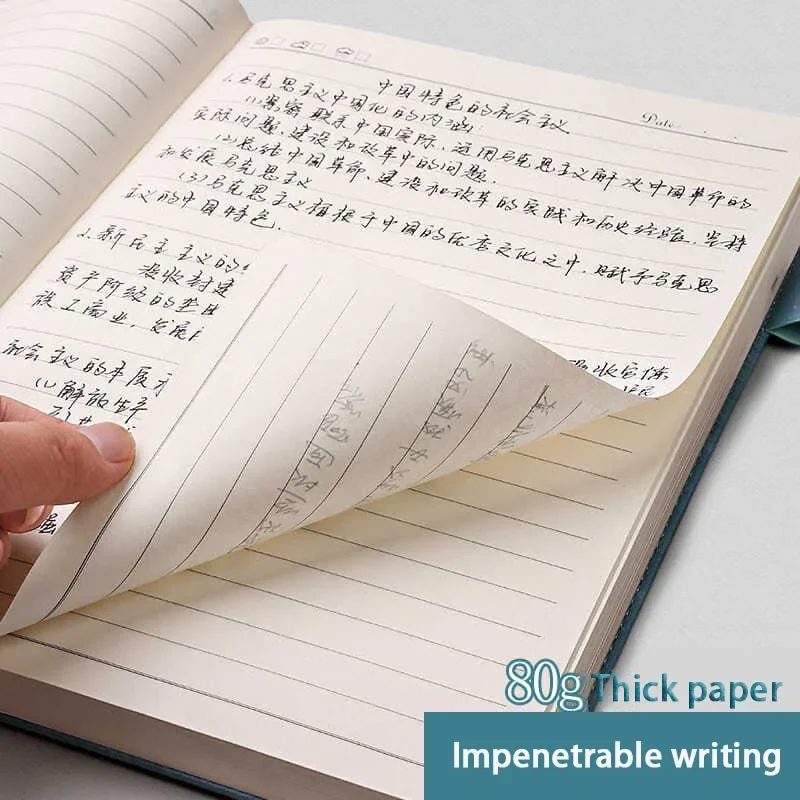 Date
中国特色的社会主义
1.马克思主义中国化的内涵:
(1)紧密联系中国实际,运用马克思主义解决中国革命的
实际问题,建设和改革中的问题.
(2)总结中国革命、建设和改革的实践和历史经验,坚持
和发展马克思主义
(3)马克思主义植根于中国的优秀文化之中,赋予马克思
主义的中国特色.
2.新民主主义的
没收封建
资产阶级的
族工商业,发展
社会主义的本质
(1)解放生产
80g Thick paper
Impenetrable writing